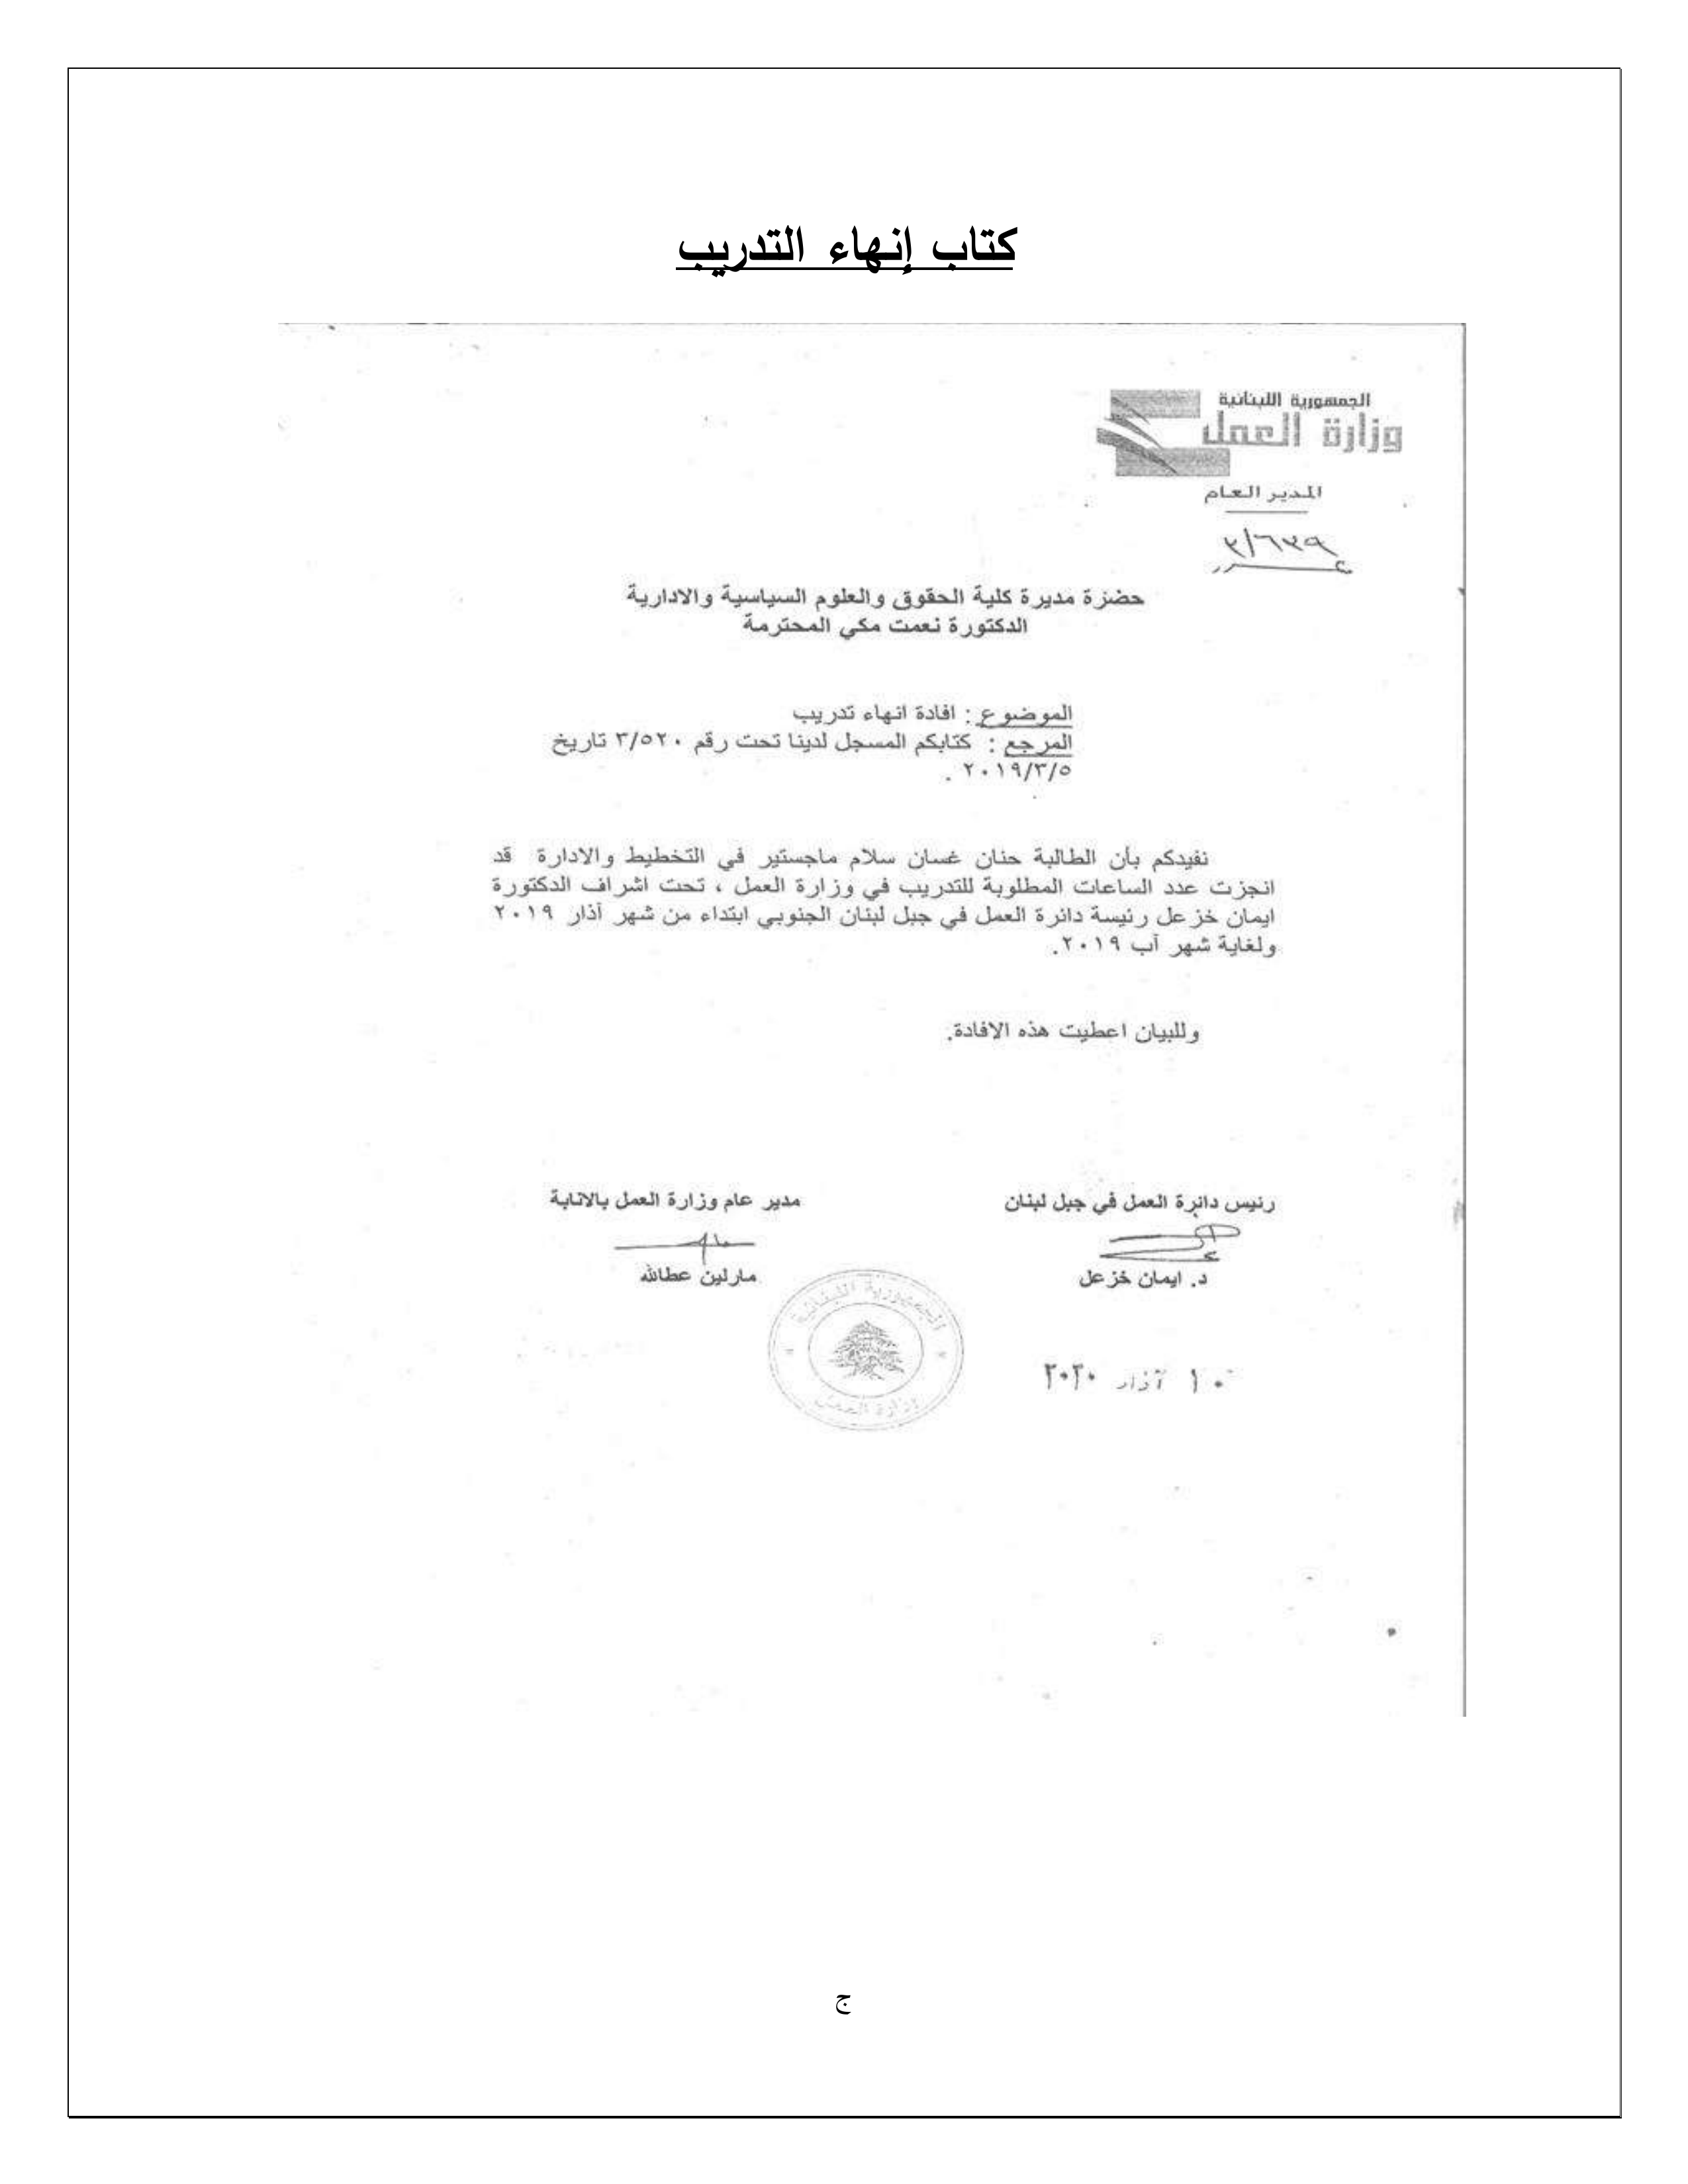 كتاب إنهاء التدريب
الجمهورية اللبنانية
وزارة العمل
المدير العام
٣/٦٣٩
حضرة مديرة كلية الحقوق والعلوم السياسية والادارية
الدكتورة نعمت مكي المحترمة
الموضوع : افادة انهاء تدريب
المرجع : كتابكم المسجل لدينا تحت رقم ٣/٥٢٠ تاريخ
٢٠١٩/٣/٥ .
نفيدكم بأن الطالبة حنان غسان سلام ماجستير في التخطيط والادارة قد
انجزت عدد الساعات المطلوبة للتدريب في وزارة العمل ، تحت اشراف الدكتورة
ايمان خزعل رئيسة دائرة العمل في جبل لبنان الجنوبي ابتداء من شهر أذار ٢٠١٩
ولغاية شهر آب ٢٠١٩.
وللبيان اعطيت هذه الافادة.
رئيس دائرة العمل في جبل لبنان
مدير عام وزارة العمل بالانابة
د. ايمان خزعل
مارلين عطالله
الجمهورية اللبنانية
وزارة العمل
١٠ آذار ٢٠٢٠
ج